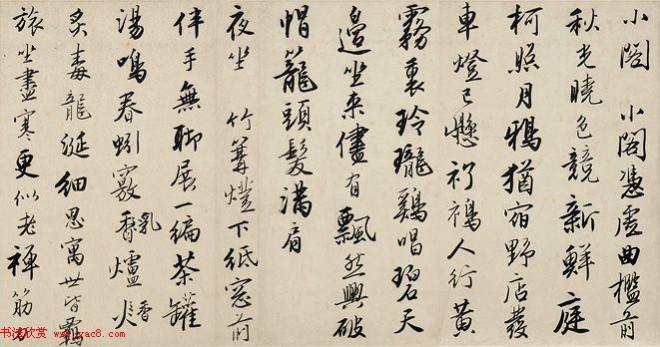 小閣 小閣憑虛曲檻前
秋光曉色競新鮮庭
柯照月鴉猶宿野店發
車燈已懸 人行黃
霧裏玲瓏鷄唱碧天
邊坐來儘有飄然興破
帽籠頭髮滿肩
夜坐 竹篝燈下紙窓前
伴手無聊展一編茶罐
湯鳴春蚓竅乳香爐火香
炙毒龍涎細思寓世皆羈
旅坐盡寒更似老禪筋力
书法欣赏
www.yac8.com